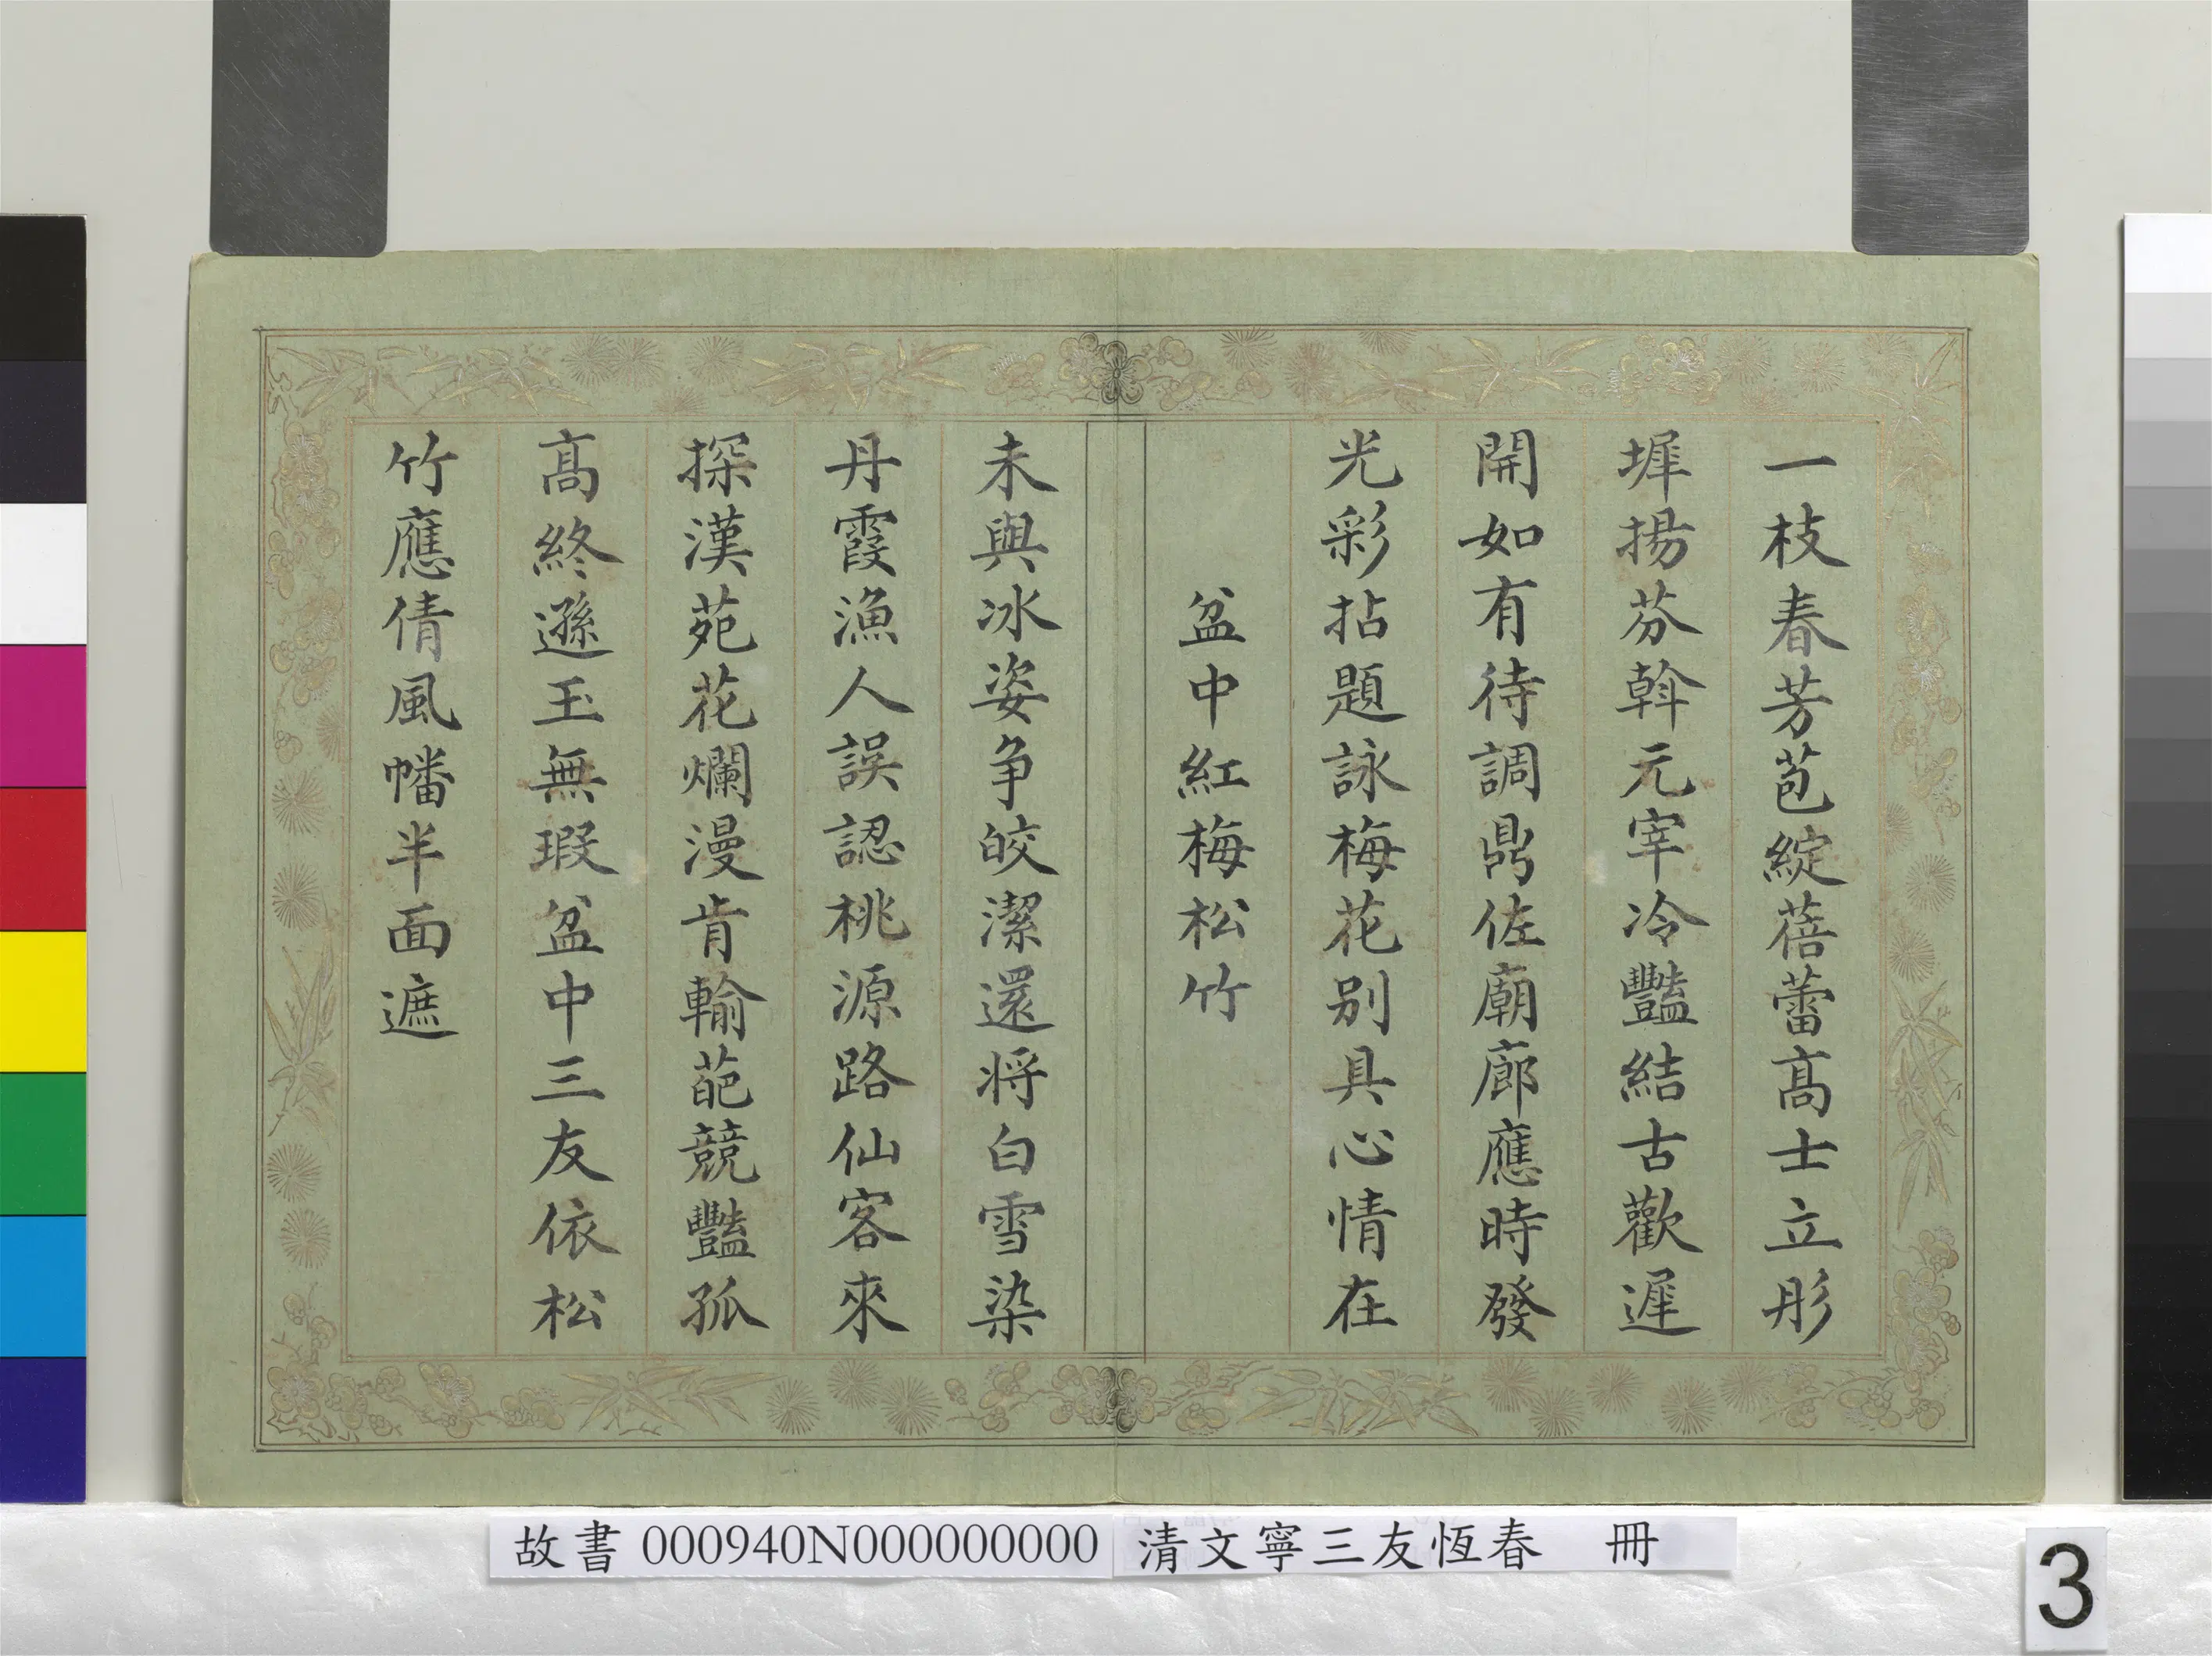 一枝春芳苞綻蓓蕾高士立彤
墀揚芬斡元宰冷豔結古歡遲
開如有待調鼎佐廟廊應時發
光彩拈題詠梅花別具心情在
盆中紅梅松竹
未與冰姿爭皎潔還將白雪染
丹霞漁人誤認桃源路仙客來
探漢苑花爛漫肯輸葩競豔孤
高終遜玉無瑕盆中三友依松
竹應倩風幡半面遮
故書 000940N000000000 清文寧三友恆春 冊
3